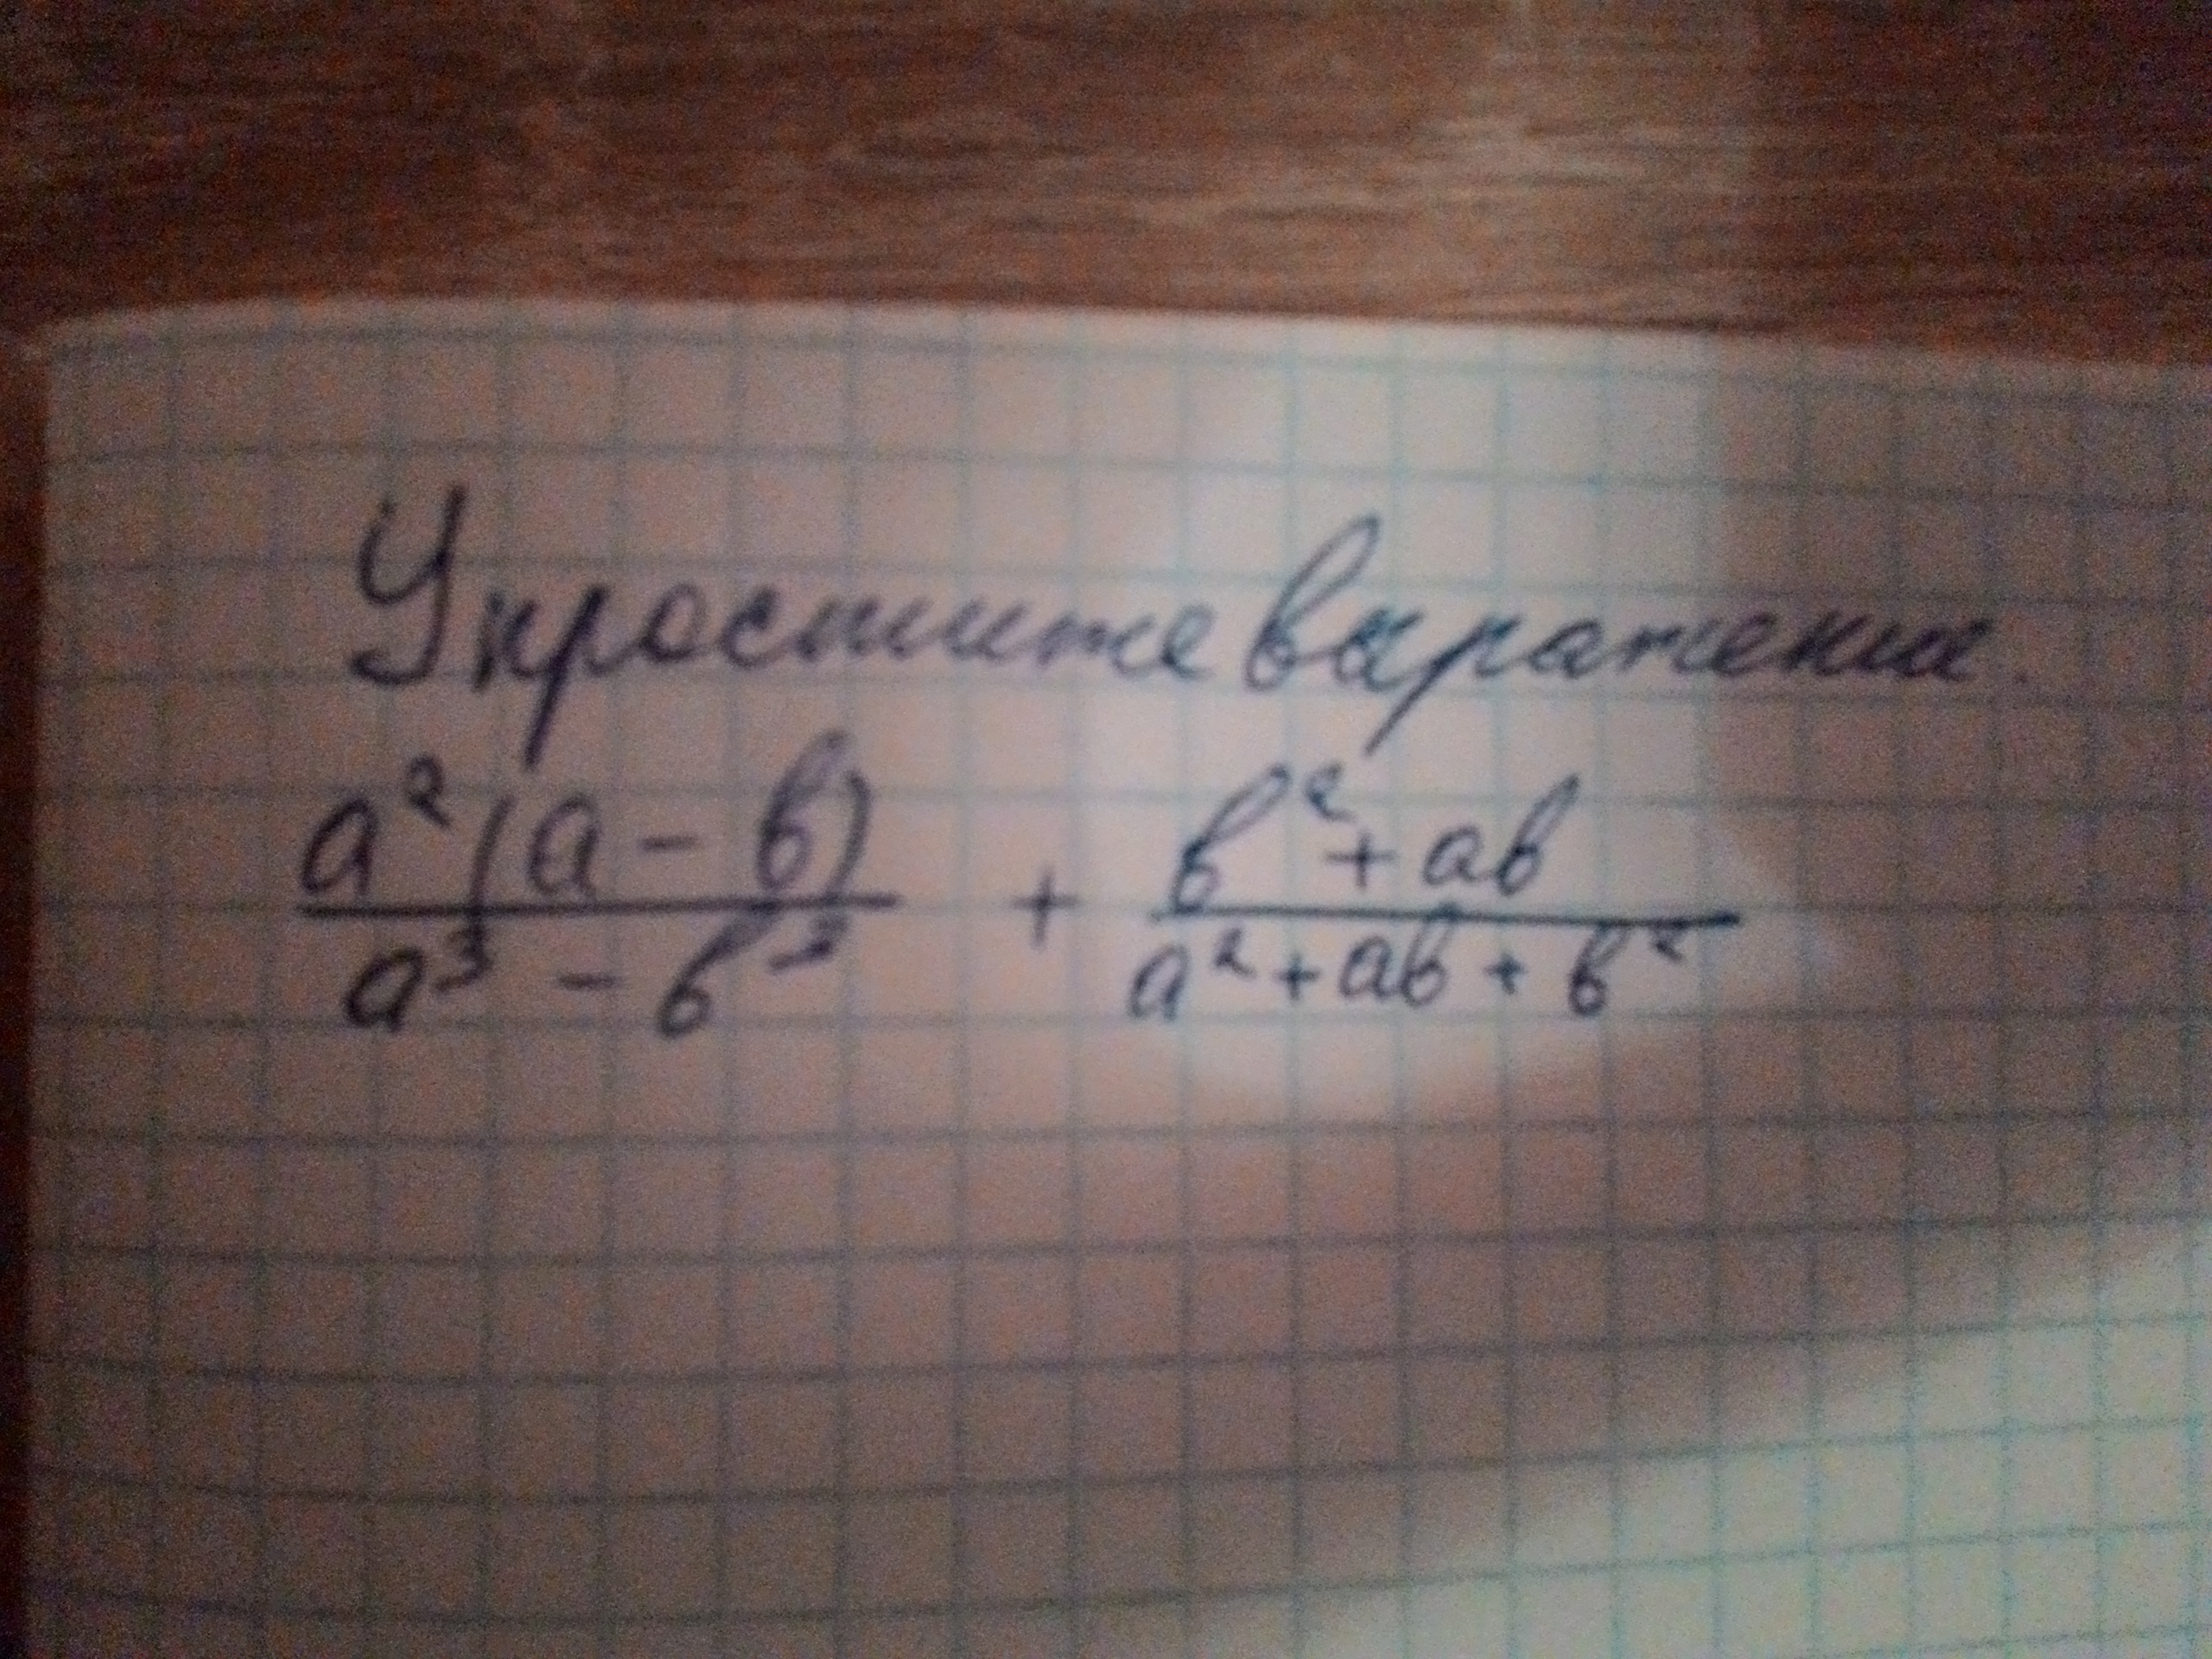 Упростите выражение.
a²(a - b) / a³ - b³ + b² + ab / a² + ab + b²